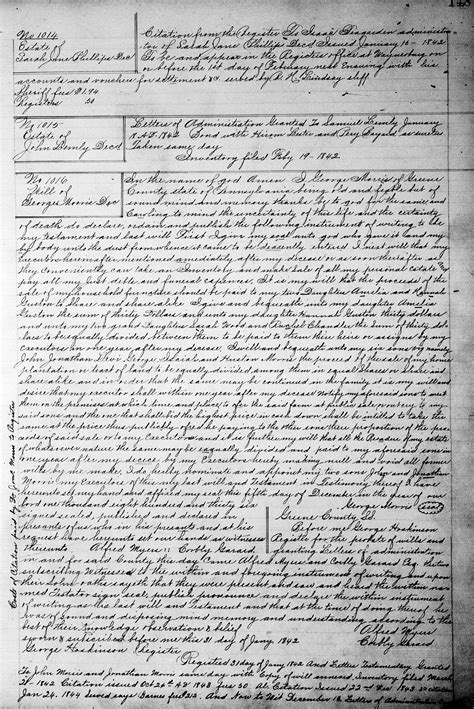 No 1014
Estate of
Sarah Jane Phillips Decd
Citation from the Register To Isaac Teagarden administra
tor of Sarah Jane Phillips Decd Issued January 10 - 1842
To be and appear in the Registers office at Waynesburg on
or before the 1st day of February next Ensuing with his
accounts and vouchers for settlement &c. served by D. A. Lindsay sheff
Sheriff fees $1.94
Registers 50
No 1015
Estate of
John Lemly Decd
Letters of Administration Granted To Samuel Lemly January
18 A.D. 1842 Bond with Hiram Lemly and as sureties
Taken same day
Inventory filed Feby 19 - 1842
No 1016
Will of
George Morris Dec
In the name of god Amen I George Morris of Greene
County state of Pennsylvania being old and feeble but of
sound mind and memory thanks be to god for the same and
Calling to mind the uncertainty of this life and the certainty
of death do declare, ordain and publish the following instrument of writing to be
my Testament and last will First I give my soul unto god who gave it and my
body unto the dust from whence it came to be decently entered I next will that my
executors hereinafter mentioned amediately after my decease or as soon thereafter as
they conveniently can take an Inventory and make sale of all my personal estate
pay all my Just debts and funeral expenses. It is my will that the proceeds of the
sale of my household furniture should be paid to my two Daughters Amelia and Hannah
Guston to share and share alike I give and bequeath unto my daughter Amelia
Guston the sum of thirty dollars and unto my daughter Hannah Guston thirty dollars
and unto my two grand Daughters Sarah Wood and Rachel Chandler the sum of thirty dol
lars to be equally divided between them to be paid to them their heirs or assigns by my
Executors one year after my decease. I will and bequeath unto my six sons
John Jonathan Levi George Isaiah and Huston Morris the proceed of the sale of my
plantation or tract of land to be equally divided among them in equal shares or share and
share alike and in order that the same may be continued in the family it is my will and
desire that my executors shall within one year after my decease Notify my aforesaid sons to meet
on the premises at a suitable time and place to offer the said farm at public sale
said sons and the one that shall bid the highest price in cash down shall be intitled to take the
same at the price thus publickly offered after he paying to the other sons there proportion of the pro
ceeds of said sale or to my Executors and it is further my will that all the Residue of my estate
of whatsoever nature the same may be equally divided and paid to my aforesaid sons in
one year after my decease by my Executors hereby making null and void all former
wills by me made. I do hereby nominate and appoint my two sons John and Jonathan
Morris my Executors of this my last will and Testament in Testimony thereof I have
hereunto set my hand and affixed my seal this fifth day of December in the year of our
Lord one thousand eight hundred and thirty six
George Morris (seal)
signed, published and declared in
presents of us who in his presents and at his
request have hereunto set our hands as witnesses
thereunto
Alfred Myers
Corbly Garard
Greene County Sd.
Before me George Hoskinson
Register for the probate of wills and
granting Letters of administration
in and for said County this day Came Alfred Myers and Corbly Garard Esq
subscribing witnesses to the within and foregoing instrument of writing and upon
their solemn oathe sayeth that they were present and saw and heard the within na
med Testator sign seal, publish pronounce and declare the within instrument
of writing as his last will and Testament and that at the time of doing thereof he
was of sound and disposing mind memory and understanding according to the
best of their knowledge observation & belief
Alfred Myers
Corbly Garard
sworn & subscribed before me this 31 day of Jany. 1842
George Hoskinson Register
Registered 31 day of Jany 1842 And Letters Testamentary Granted
To John Morris and Jonathan Morris same day with Copy of will annexed. Inventory filed March
21st 1842 Citation issued Oct 26th AD 1843 fees 50 Al Citation Issued 22nd Dec 1843
Jan 24. 1844 served says Barnes fees 2.13. And Now to Wit December 18 Letters of Administration